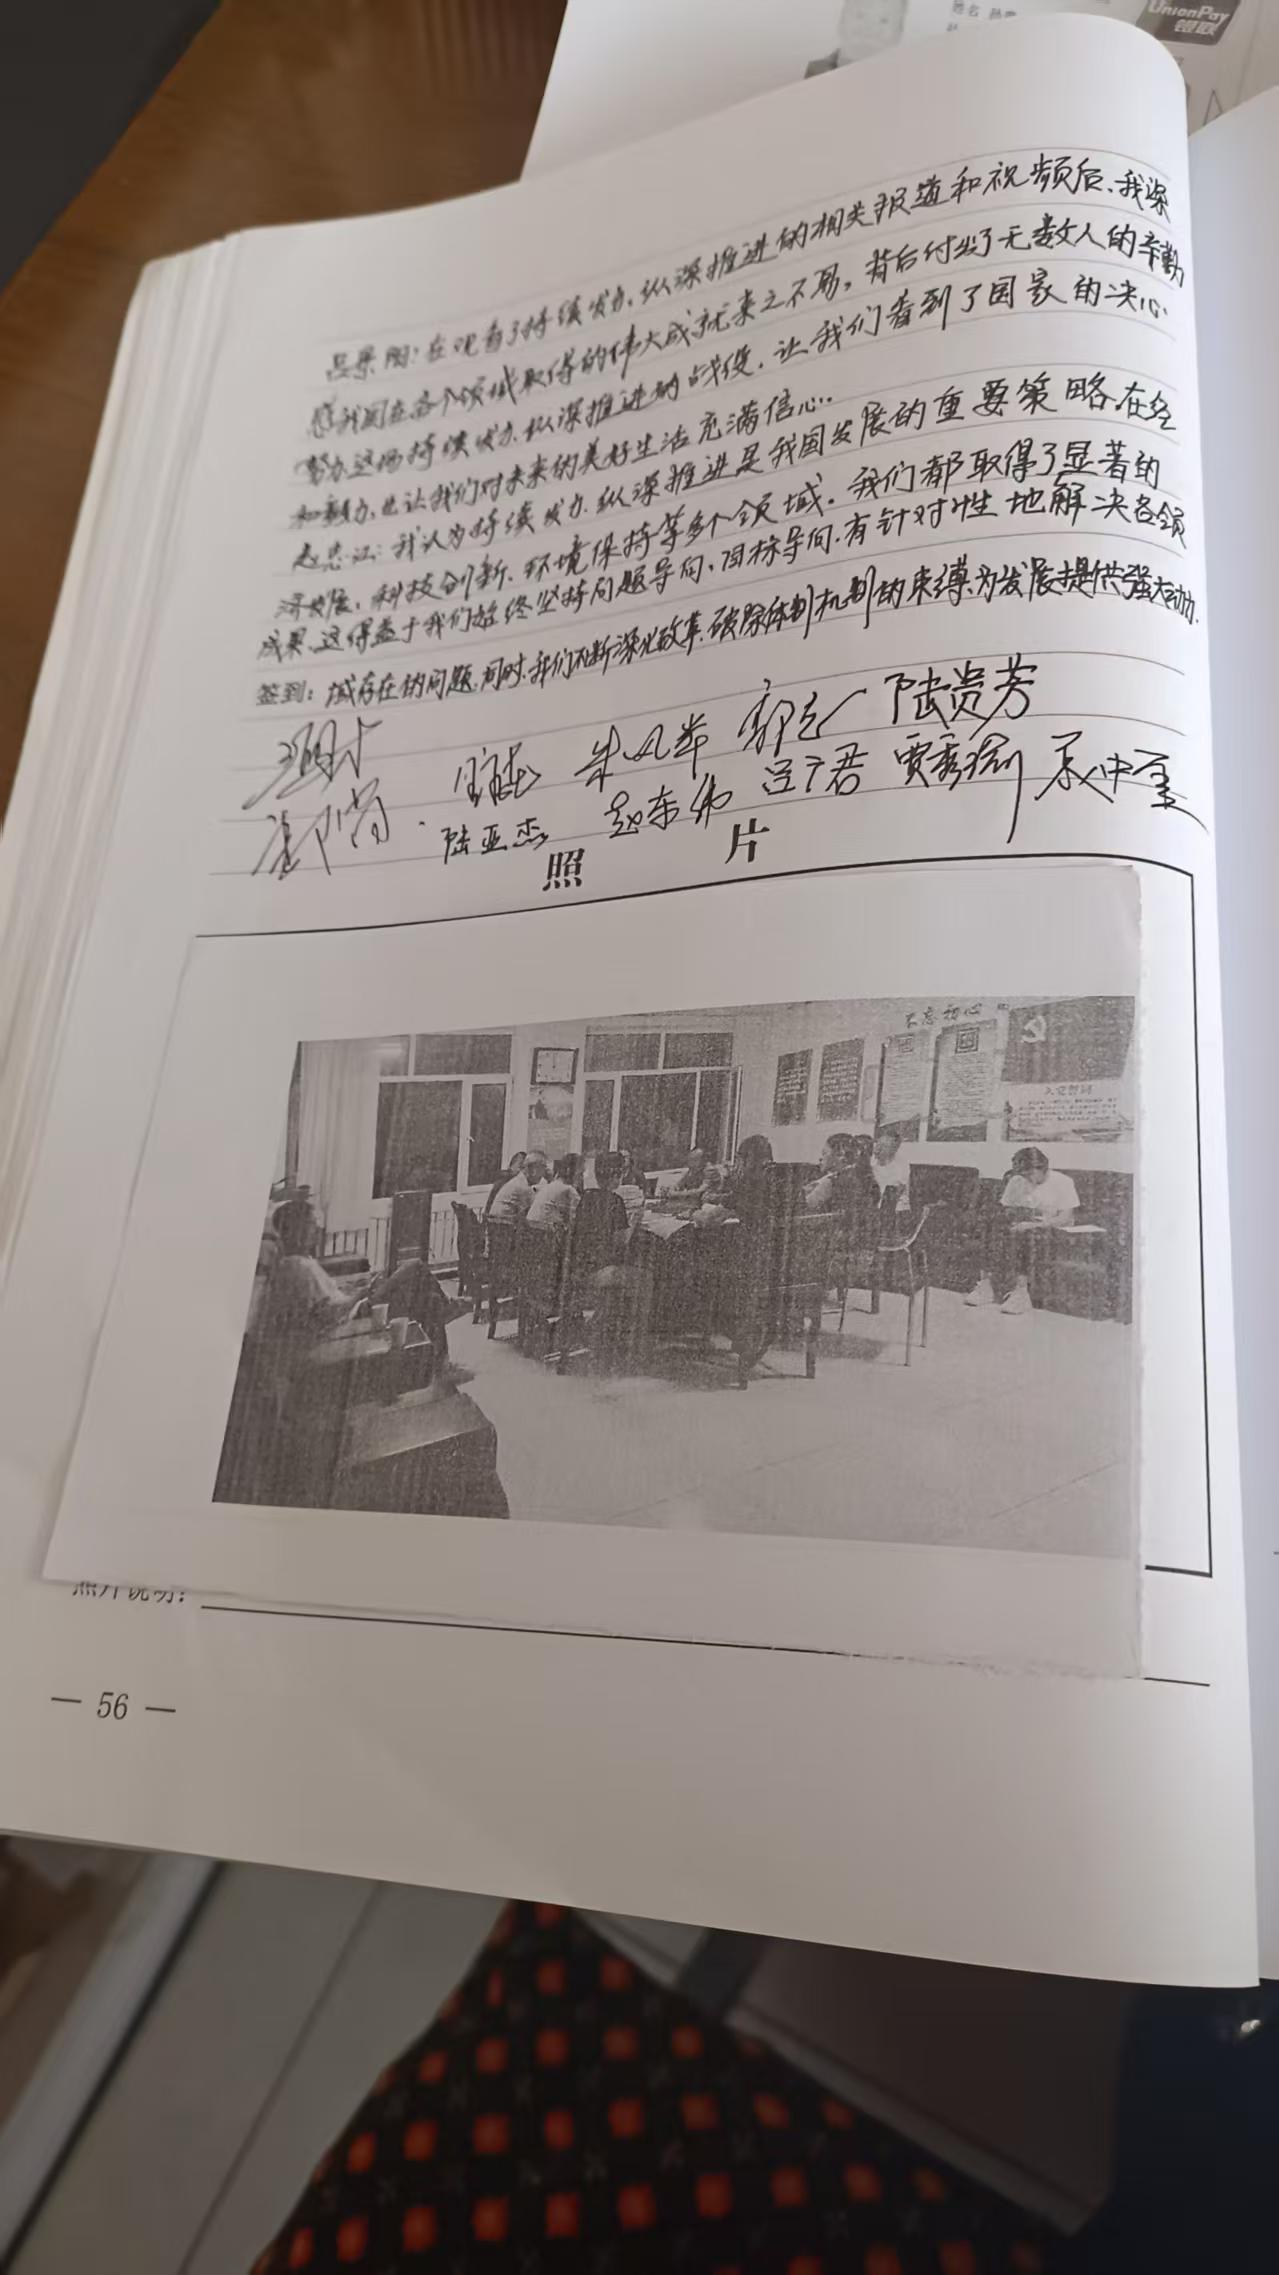 姓名
UnionPay
银联
吕景阳：在观看了持续发力、纵深推进的相关报道和视频后、我深
感我国在各个领域取得的伟大成就来之不易，背后付出了无数人的辛勤
努力.这场持续发力、纵深推进的战役，让我们看到了国家的决心
和毅力，也让我们对未来的美好生活充满信心.
我认为持续发力.纵深推进是我国发展的重要策略.在经
济发展、科技创新、环境保持等多个领域.我们都取得了显著的
成果、这得益于我们始终坚持问题导向、目标导向.有针对性地解决各领
签到：域存在的问题.同时.我们不断深化改革.破除体制机制的束缚.为发展提供强大动力.
陆贵芳
陆亚杰 赵东伟 吕广君
照 片
不忘初心
入党誓词
照片说明：
— 56 —